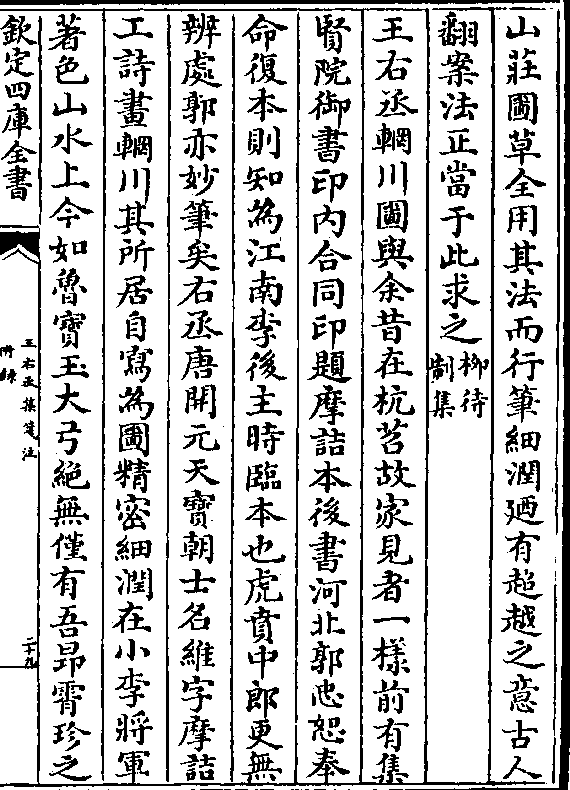 山莊圖草全用其法而行筆細潤廼有超越之意古人
翻案法正當于此求之柳待制集
王右丞輞川圖與余昔在杭苕故家見者一樣前有集
賢院御書印内合同印題摩詰本後書河北郭忠恕奉
命復本則知為江南李後主時臨本也虎賁中郎更無
辨處郭亦妙筆矣右丞唐開元天寶朝士名維字摩詰
工詩畫輞川其所居自寫為圖精密細潤在小李將軍
著色山水上今如魯寶玉大弓絶無僅有吾昻霄珍之
欽定四庫全書
王右丞集箋注
附録
二十九